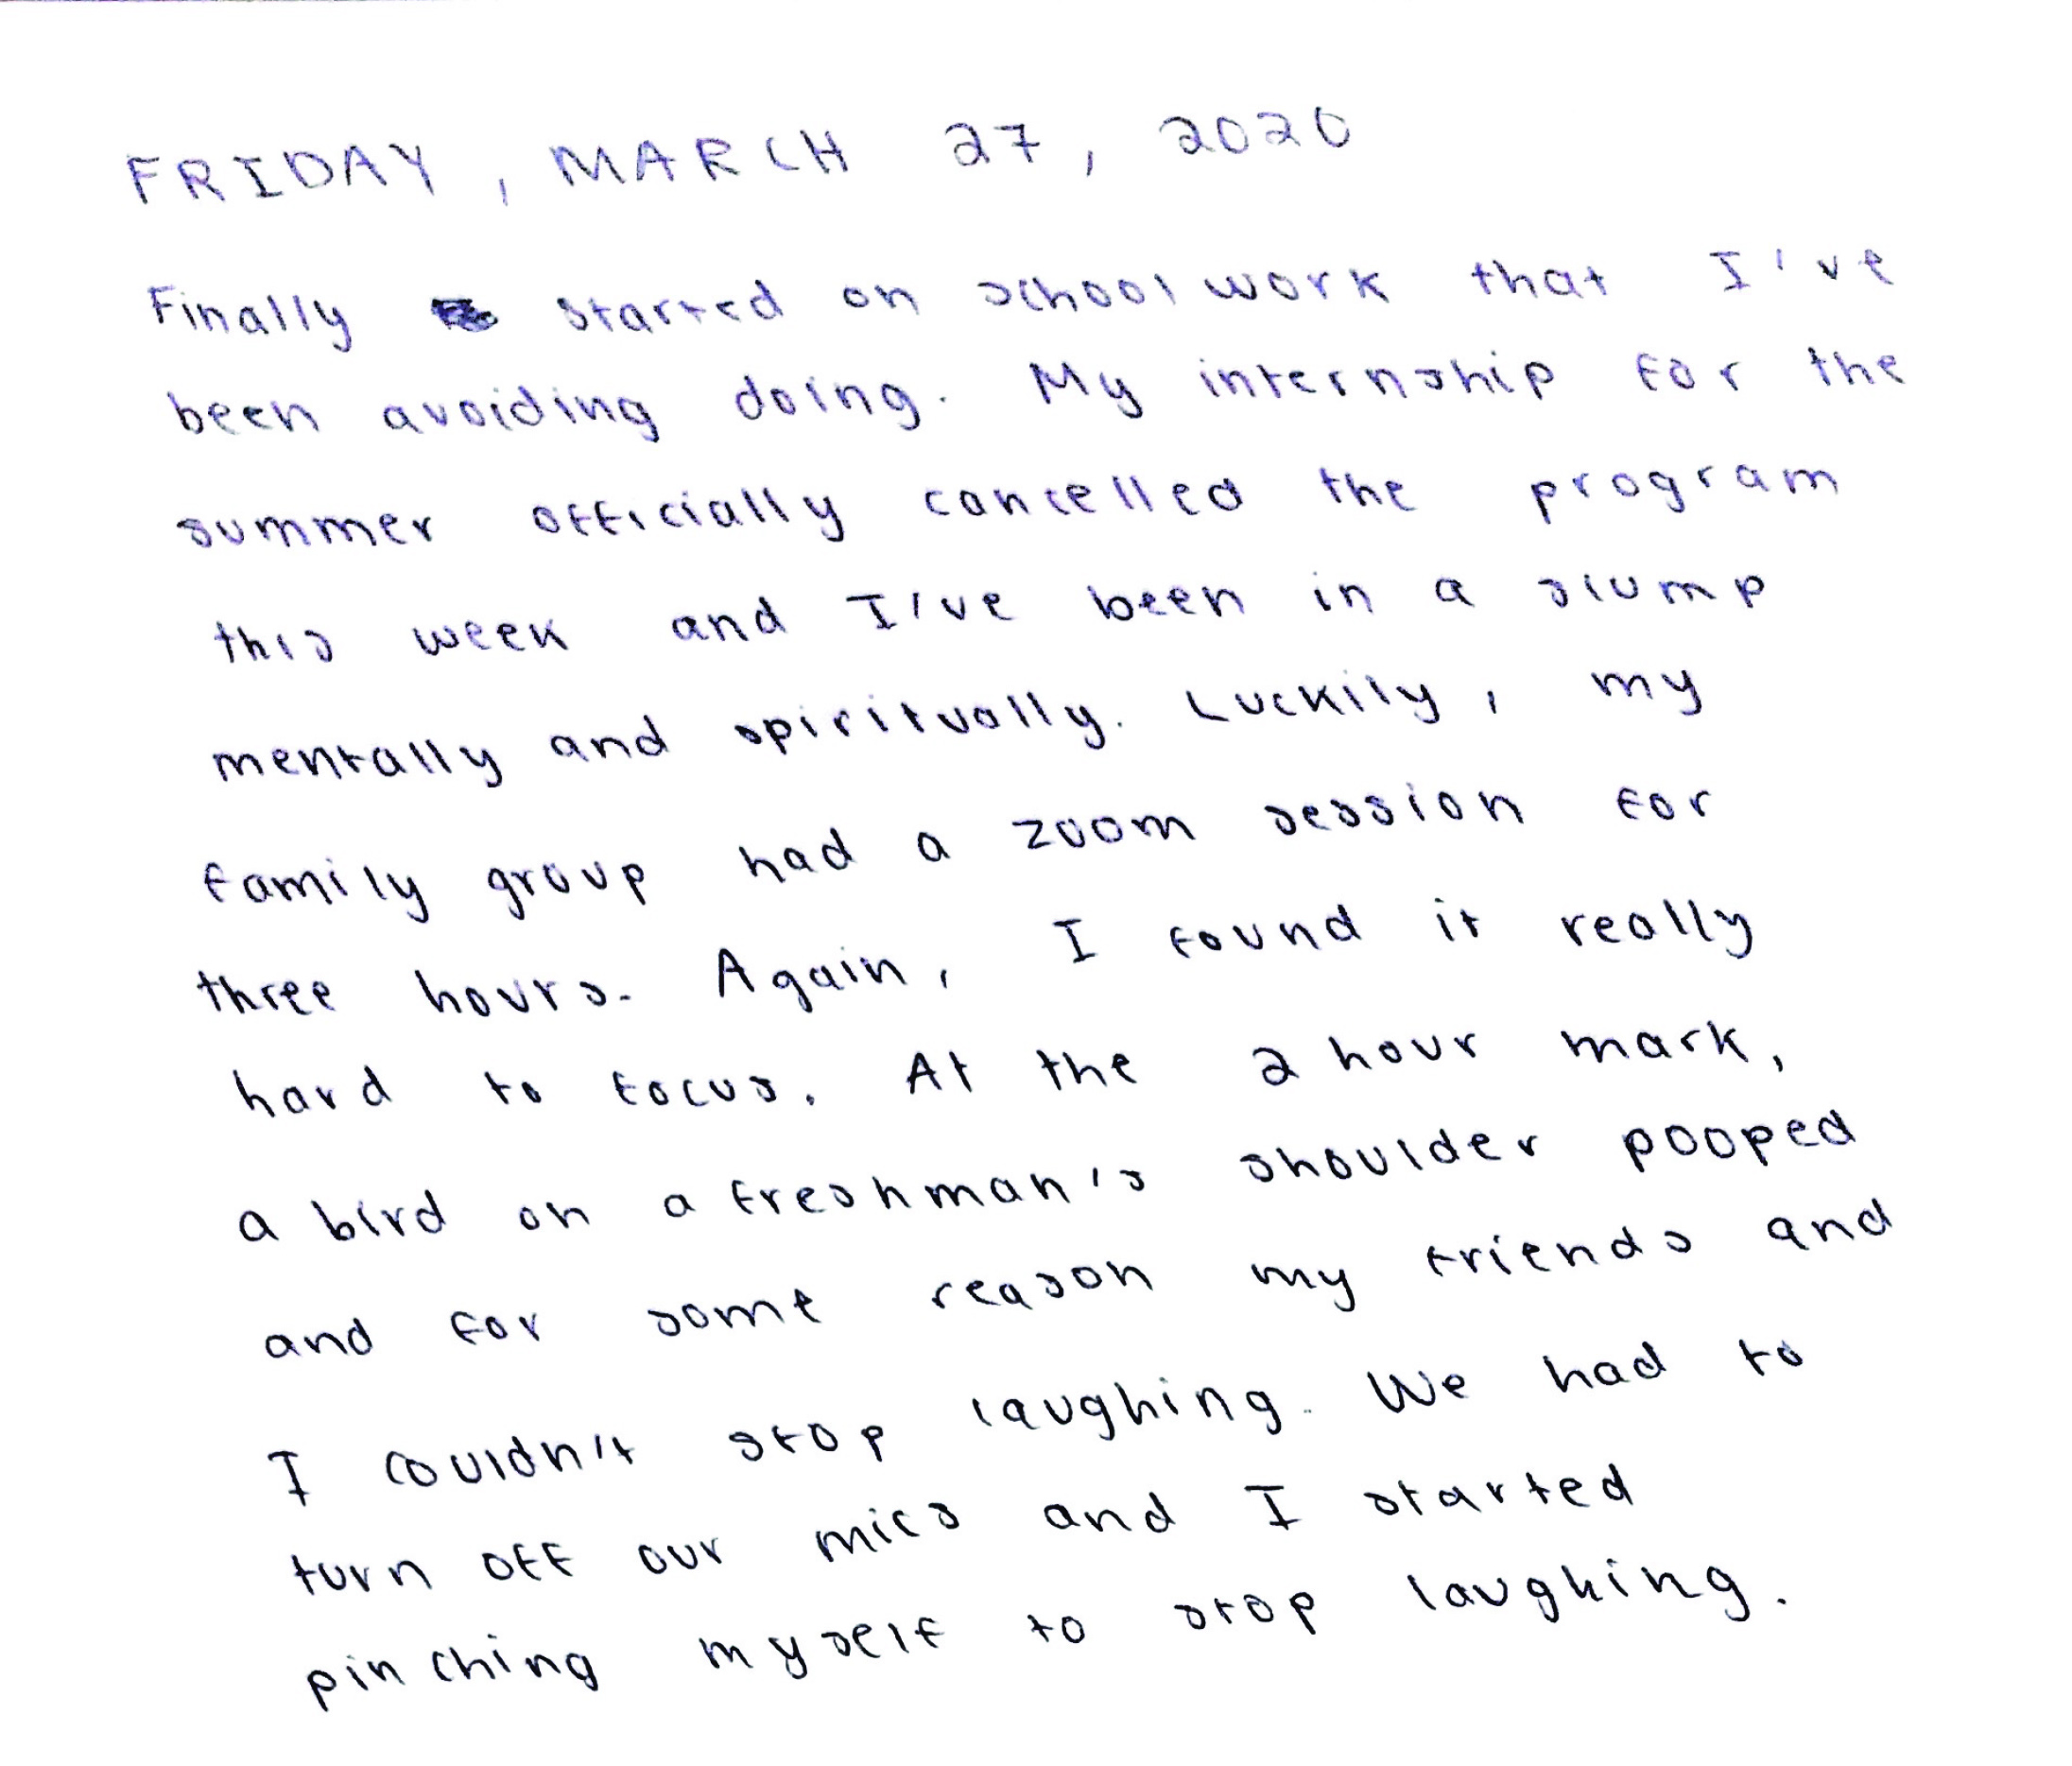 FRIDAY, MARCH 27, 2020
Finally started on school work that I've
been avoiding doing. My internship for the
summer officially cancelled the program
this week and I've been in a slump
mentally and spiritually. Luckily, my
family group had a zoom session for
three hours. Again, I found it really
hard to focus. At the 2 hour mark,
a bird on a freshman's shoulder pooped
and for some reason my friends and
I couldn't stop laughing. We had to
turn off our mics and I started
pinching myself to stop laughing.